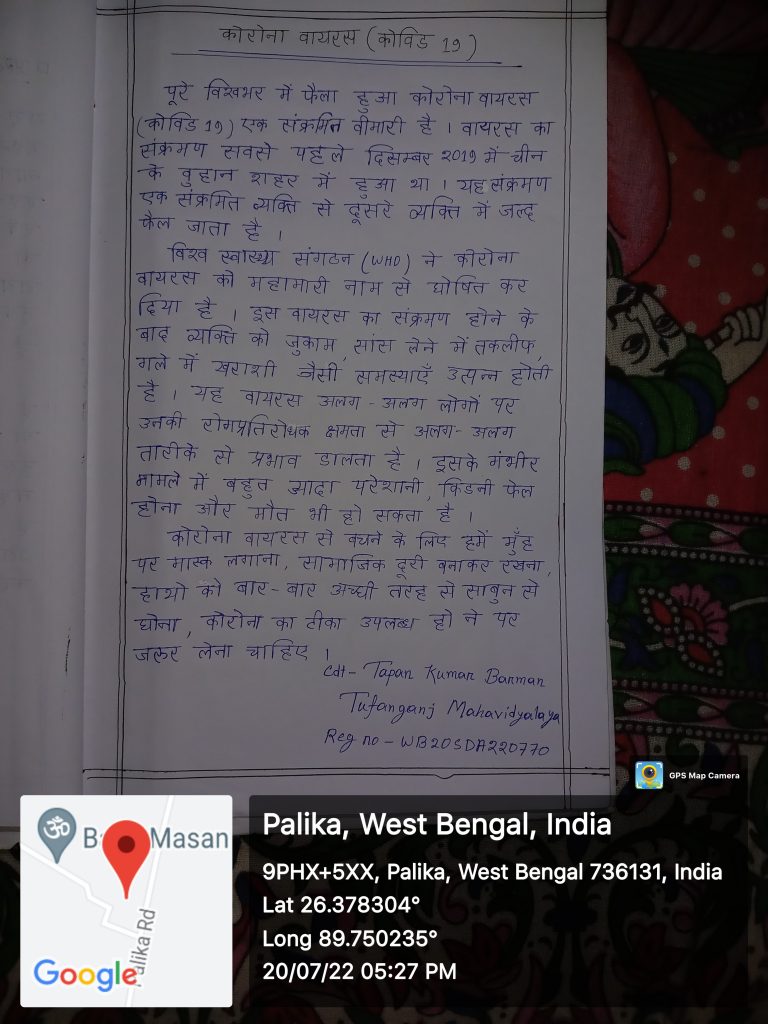 कोरोना वायरस (कोविड 19)
पूरे विश्वभर में फैला हुआ कोरोना वायरस
(कोविड 19) एक संक्रमित बीमारी है । वायरस का
संक्रमण सबसे पहले दिसम्बर 2019 में चीन
के वुहान शहर में हुआ था । यह संक्रमण
एक संक्रमित व्यक्ति से दूसरे व्यक्ति में जल्द
फैल जाता है ।
विश्व स्वास्थ्य संगठन (WHO) ने कोरोना
वायरस को महामारी नाम से घोषित कर
दिया है । इस वायरस का संक्रमण होने के
बाद व्यक्ति को जुकाम, सांस लेने में तकलीफ,
गले में खराशी जैसी समस्याएँ उत्पन्न होती
है । यह वायरस अलग - अलग लोगों पर
उनकी रोगप्रतिरोधक क्षमता से अलग- अलग
तारीके से प्रभाव डालता है । इसके गंभीर
मामले में बहुत ज्यादा परेशानी, किडनी फेल
होना और मौत भी हो सकता है ।
कोरोना वायरस से बचने के लिए हमें मुँह
पर मास्क लगाना, सामाजिक दूरी बनाकर रखना,
हाथो को बार-बार अच्छी तरह से साबुन से
धोना, कोरोना का टीका उपलब्ध हो ने पर
जरूर लेना चाहिए ।
Cdt- Tapan Kumar Barman
Tufanganj Mahavidyalaya
Reg no - WB20SDA220770
GPS Map Camera
Masan
Palika Rd
Google
Palika, West Bengal, India
9PHX+5XX, Palika, West Bengal 736131, India
Lat 26.378304°
Long 89.750235°
20/07/22 05:27 PM